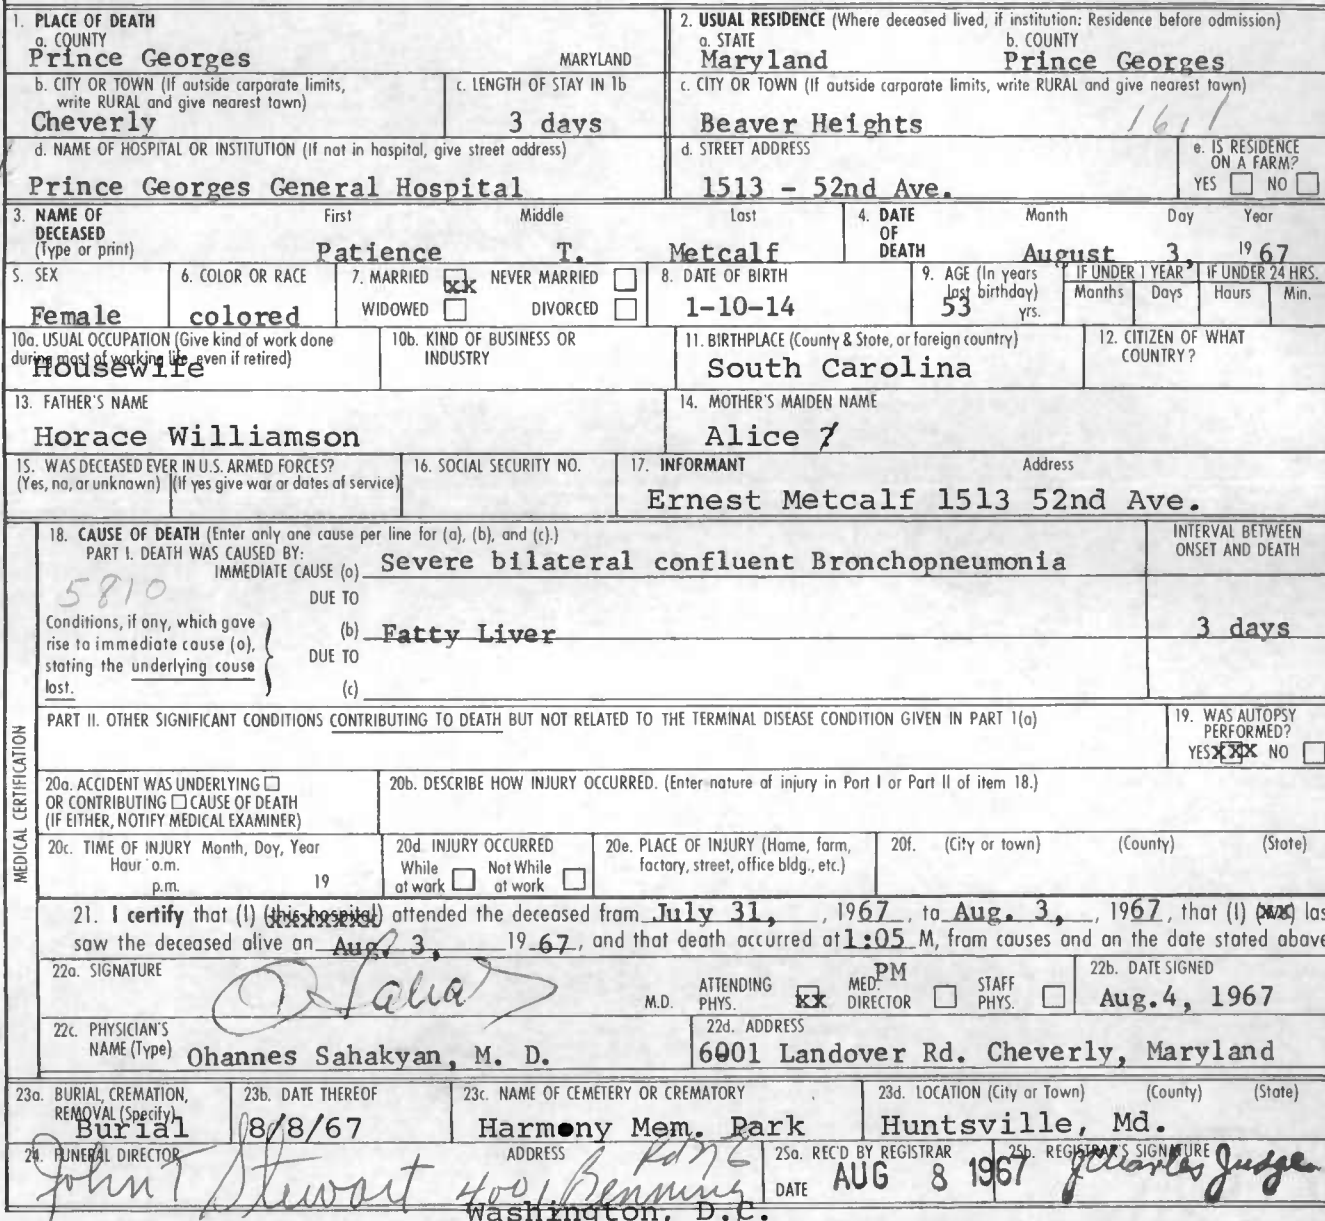 1. PLACE OF DEATH
a. COUNTY
Prince Georges MARYLAND
2. USUAL RESIDENCE (Where deceased lived, if institution: Residence before admission)
a. STATE b. COUNTY
Maryland Prince Georges
b. CITY OR TOWN (If outside corporate limits,
write RURAL and give nearest town)
Cheverly
c. LENGTH OF STAY IN 1b
3 days
c. CITY OR TOWN (If outside corporate limits, write RURAL and give nearest town)
Beaver Heights 1611
d. NAME OF HOSPITAL OR INSTITUTION (If not in hospital, give street address)
Prince Georges General Hospital
d. STREET ADDRESS
1513 - 52nd Ave.
e. IS RESIDENCE
ON A FARM?
YES NO
3. NAME OF
DECEASED
(Type or print)
First Middle Last
Patience T. Metcalf
4. DATE
OF
DEATH
Month Day Year
August 3, 1967
5. SEX
Female
6. COLOR OR RACE
colored
7. MARRIED xx NEVER MARRIED
WIDOWED DIVORCED
8. DATE OF BIRTH
1-10-14
9. AGE (In years
last birthday)
53 yrs.
IF UNDER 1 YEAR
Months Days
IF UNDER 24 HRS.
Hours Min.
10a. USUAL OCCUPATION (Give kind of work done
during most of working life, even if retired)
Housewife
10b. KIND OF BUSINESS OR
INDUSTRY
11. BIRTHPLACE (County & State, or foreign country)
South Carolina
12. CITIZEN OF WHAT
COUNTRY?
13. FATHER'S NAME
Horace Williamson
14. MOTHER'S MAIDEN NAME
Alice ?
15. WAS DECEASED EVER IN U.S. ARMED FORCES?
(Yes, no, or unknown) (If yes give war or dates of service)
16. SOCIAL SECURITY NO.
17. INFORMANT Address
Ernest Metcalf 1513 52nd Ave.
MEDICAL CERTIFICATION
18. CAUSE OF DEATH (Enter only one cause per line for (a), (b), and (c).)
PART I. DEATH WAS CAUSED BY:
IMMEDIATE CAUSE (a) Severe bilateral confluent Bronchopneumonia
INTERVAL BETWEEN
ONSET AND DEATH
5810
DUE TO
Conditions, if any, which gave
rise to immediate cause (a),
stating the underlying cause
last.
(b) Fatty Liver 3 days
DUE TO
(c)
PART II. OTHER SIGNIFICANT CONDITIONS CONTRIBUTING TO DEATH BUT NOT RELATED TO THE TERMINAL DISEASE CONDITION GIVEN IN PART 1(a)
19. WAS AUTOPSY
PERFORMED?
YES xxx NO
20a. ACCIDENT WAS UNDERLYING
OR CONTRIBUTING CAUSE OF DEATH
(IF EITHER, NOTIFY MEDICAL EXAMINER)
20b. DESCRIBE HOW INJURY OCCURRED. (Enter nature of injury in Part I or Part II of item 18.)
20c. TIME OF INJURY Month, Day, Year
Hour a.m.
p.m. 19
20d INJURY OCCURRED
While Not While
at work at work
20e. PLACE OF INJURY (Home, farm,
factory, street, office bldg., etc.)
20f. (City or town) (County) (State)
21. I certify that (I) (this hospital) attended the deceased from July 31, , 1967, to Aug. 3, , 1967, that (I) (xx) las
saw the deceased alive on Aug. 3, 1967, and that death occurred at 1:05 M, from causes and on the date stated above
PM
22a. SIGNATURE
M.D. ATTENDING
PHYS. xx MED.
DIRECTOR STAFF
PHYS.
22b. DATE SIGNED
Aug.4, 1967
22c. PHYSICIAN'S
NAME (Type) Ohannes Sahakyan, M. D.
22d. ADDRESS
6001 Landover Rd. Cheverly, Maryland
23a. BURIAL, CREMATION,
REMOVAL (Specify)
Burial
23b. DATE THEREOF
8/8/67
23c. NAME OF CEMETERY OR CREMATORY
Harmony Mem. Park
23d. LOCATION (City or Town) (County) (State)
Huntsville, Md.
24. FUNERAL DIRECTOR
John T Stewart
ADDRESS
4001 Benning Rd NE
Washington, D.C.
25a. REC'D BY REGISTRAR
DATE AUG 8 1967
25b. REGISTRAR'S SIGNATURE
J Charles Judge